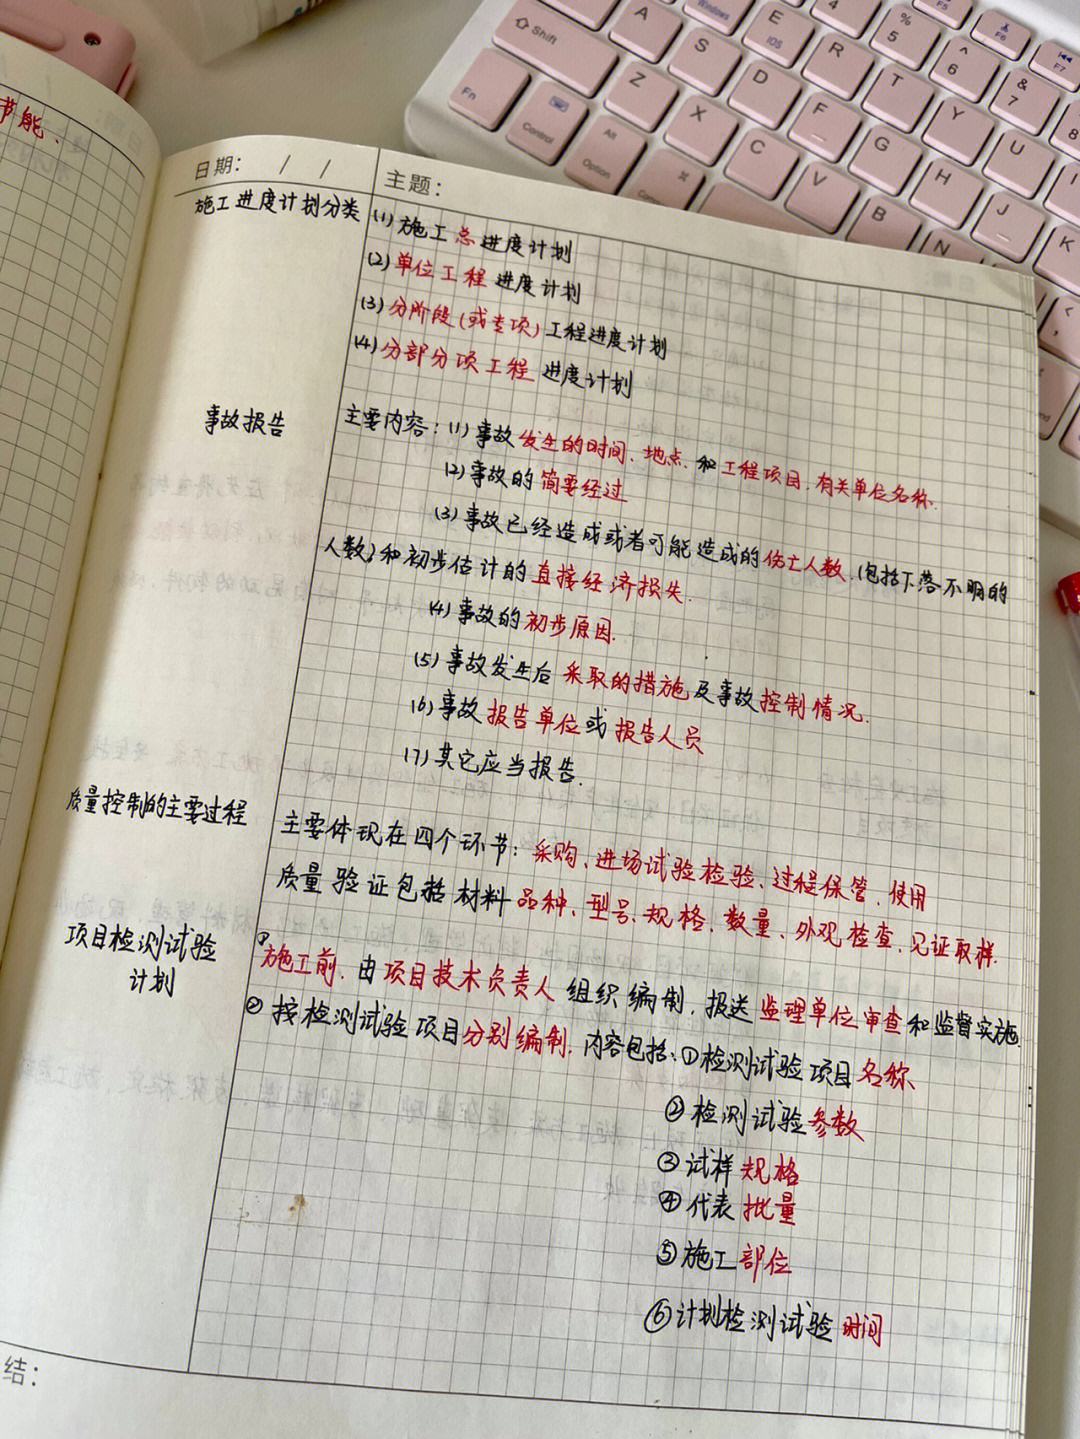 Shift
A
S
D
F
G
H
J
K
Z
X
C
V
B
N
E
IOS
R
T
Y
U
I
4
%
5
^
6
&
7
8
F5
F6
F7
Windows
Fn
Control
Alt
Option
节能、
日期： / /
主题：
施工进度计划分类
(1)施工总进度计划
(2)单位工程进度计划
(3)分阶段(或专项)工程进度计划
(4)分部分项工程进度计划
事故报告
主要内容：(1)事故发生的时间、地点、和工程项目、有关单位名称.
(2)事故的简要经过
(3)事故已经造成或者可能造成的伤亡人数、(包括下落不明的
人数)和初步估计的直接经济损失.
(4)事故的初步原因.
(5)事故发生后采取的措施及事故控制情况.
(6)事故报告单位或报告人员
(7)其它应当报告.
质量控制的主要过程
主要体现在四个环节：采购、进场试验检验、过程保管、使用
质量验证包括材料品种、型号、规格、数量、外观检查、见证取样.
项目检测试验
计划
①施工前、由项目技术负责人组织编制、报送监理单位审查和监督实施.
②按检测试验项目分别编制.内容包括：①检测试验项目名称
②检测试验参数
③试样规格
④代表批量
⑤施工部位
⑥计划检测试验时间
结：